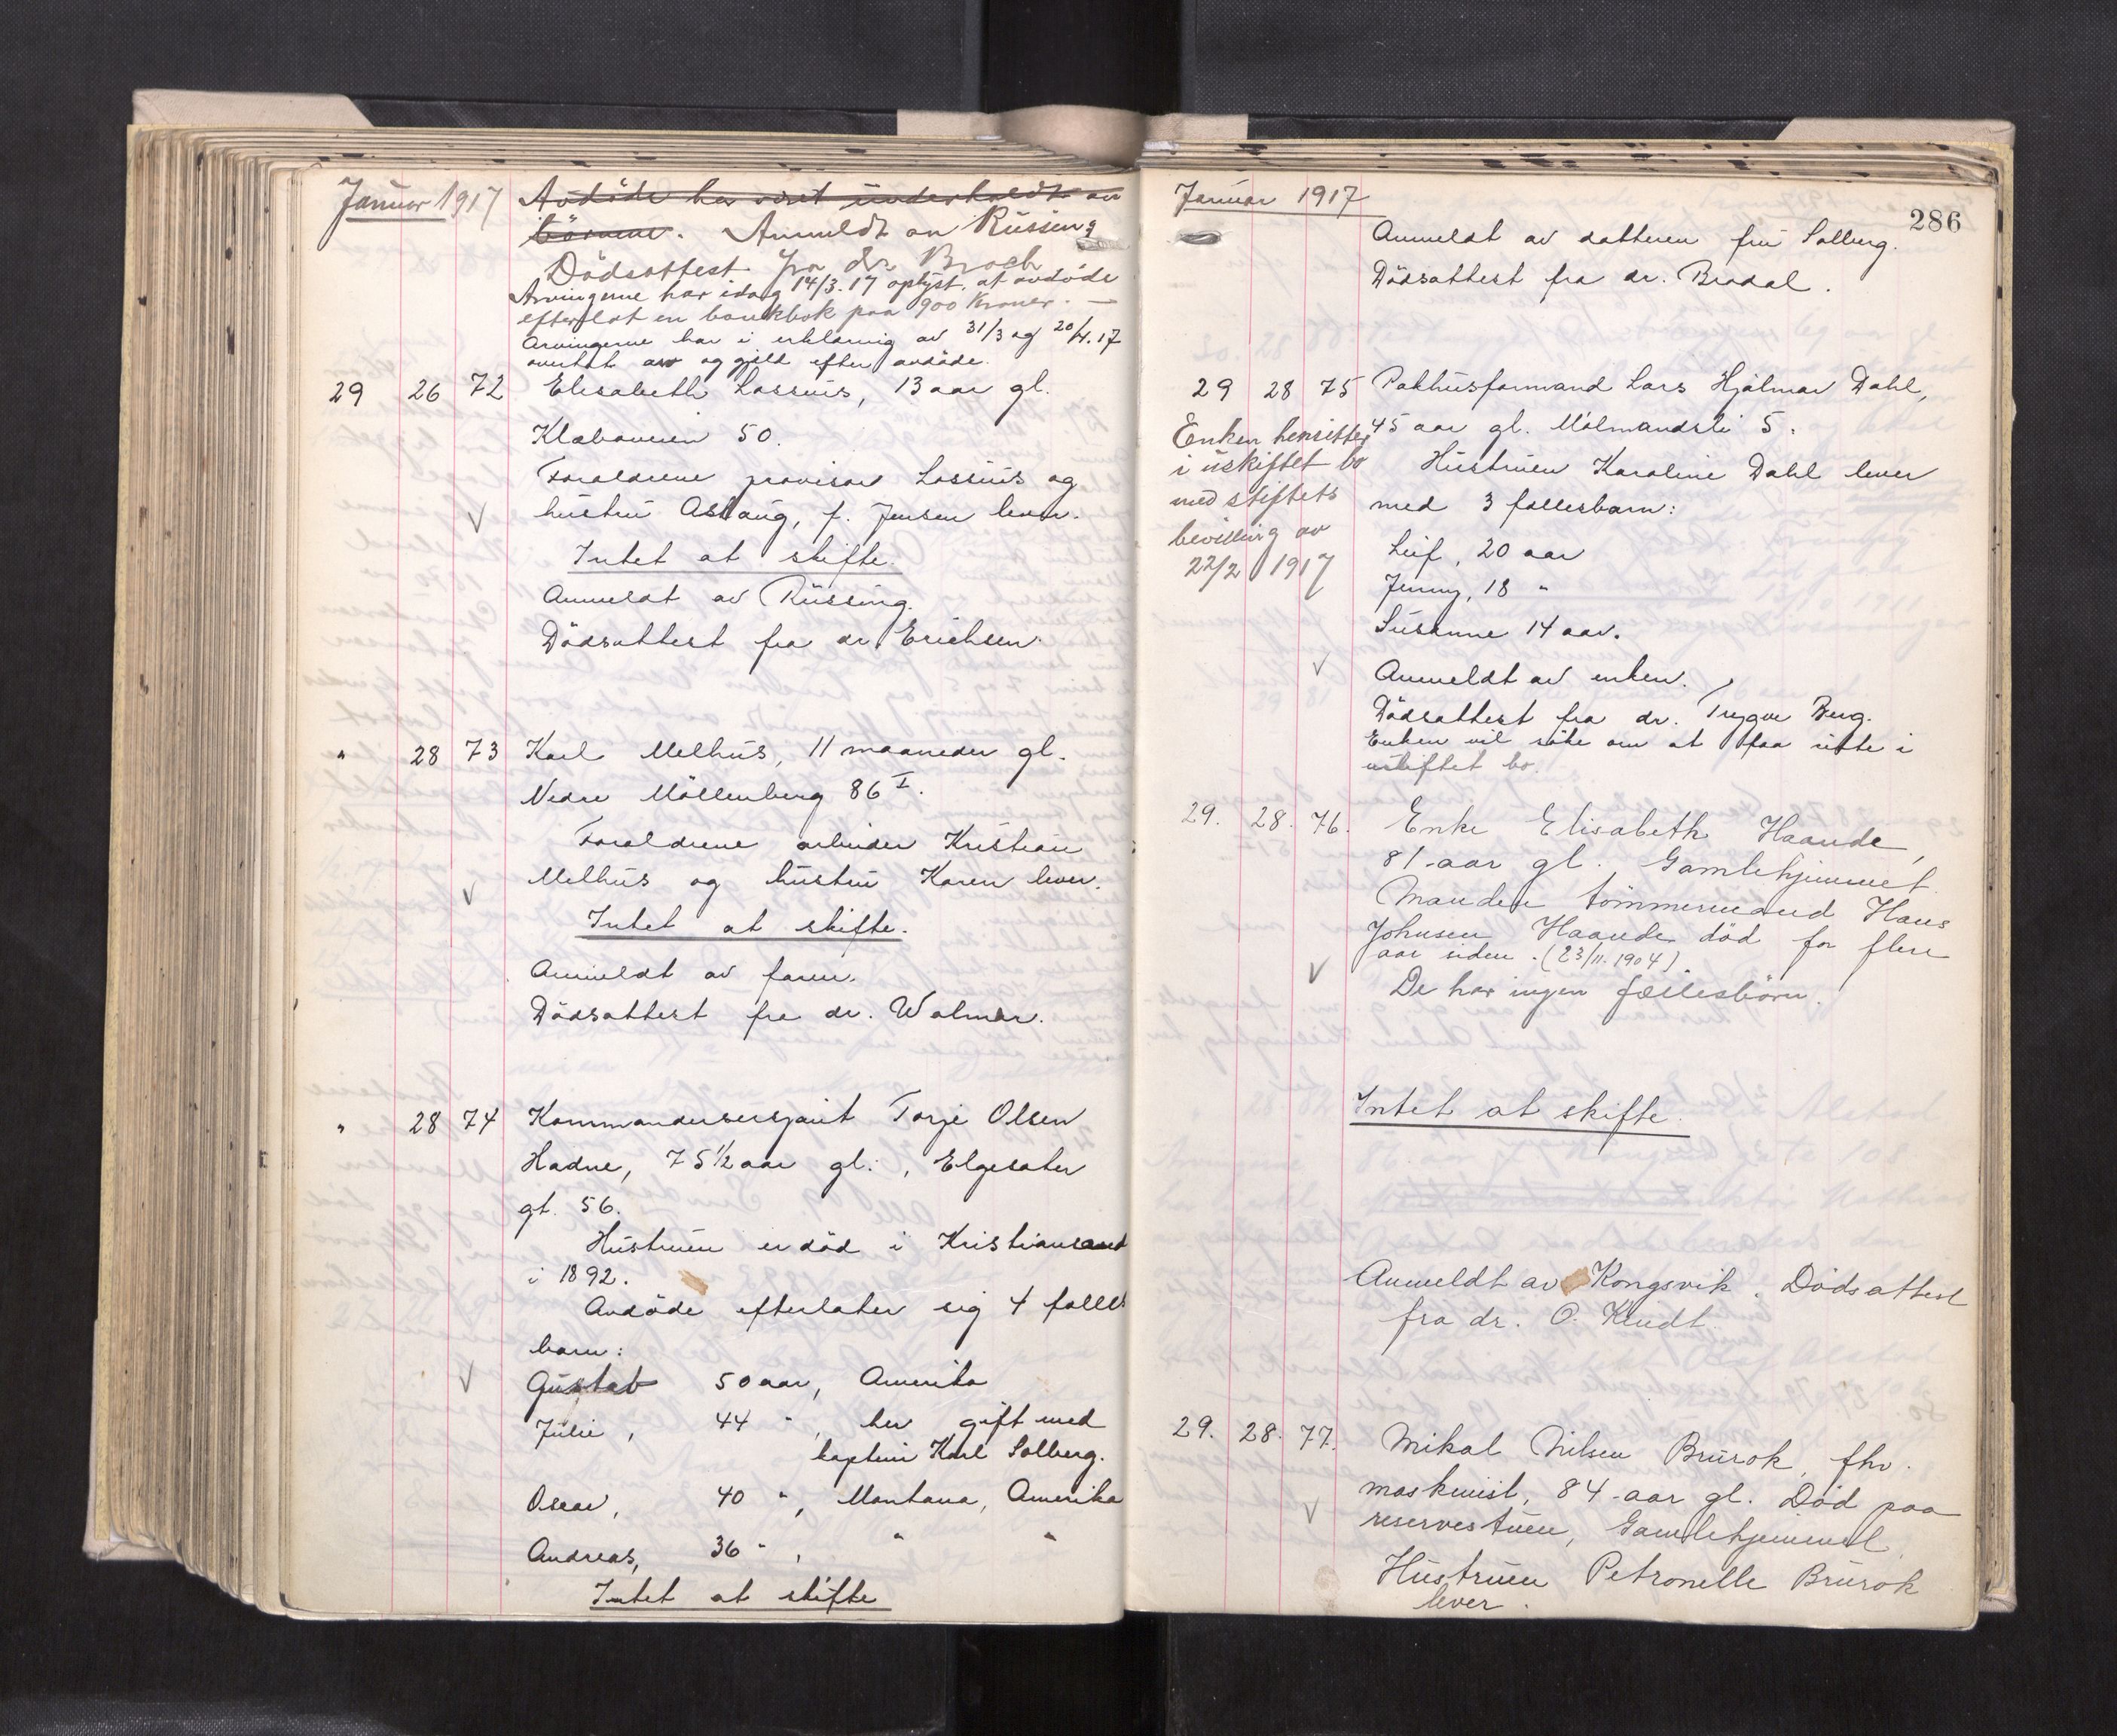 Januar 1917
Avdöde har været underholdt av
börnene. Anmeldt av Rüssing
Dödsattest fra dr. Broch
Arvingerne har idag 14/3.17 oplyst, at avdöde
efterlot en bankbok paa 900 Kroner. —
Arvingerne har i erklæring av 31/3 og 20/4.17
overtat arv og gjeld efter avdöde.
29 26 72 Elisabeth Lossius, 13 aar gl.
Klæbuveien 50.
Forældrene provisor Lossius og
hustru Aslaug, f. Jensen lever.
Intet at skifte.
Anmeldt av Rüssing.
Dödsattest fra dr Erichsen.
" 28 73 Karl Melhus, 11 maaneder gl.
Nedre Möllenberg 86 I.
Forældrene arbeider Kristian
Melhus og hustru Karen lever.
Intet at skifte.
Anmeldt av faren.
Dödsattest fra dr. Walmar.
" 28 74 Kommandersersjant Torje Olsen
Hadne, 75 1/2 aar gl., Elgesæter
gt. 56.
Hustruen er död i Kristiansand
i 1892.
Avdöde efterlater sig 4 fælles
barn:
Gustav 50 aar, Amerika
Julie, 44 " , her gift med
kaptein Karl Solberg.
Oscar, 40 " , Montana, Amerika
Andreas, 36 " , " "
Intet at skifte
Januar 1917
286
Anmeldt av datteren fru Solberg.
Dödsattest fra dr. Bradal.
29 28 75 Pakhusformand Lars Hjalmar Dahl,
45 aar gl. Målmandsli 5.
Hustruen Karoline Dahl lever
med 3 fællesbarn:
Leif, 20 aar
Jenny, 18 "
Susanne 14 aar.
Anmeldt av enken.
Dödsattest fra dr. Trygve Berg.
Enken vil söke om at faa sitte i
uskiftet bo.
Enken hensitter
i uskiftet bo
med stiftets
bevilling av
22/2 1917
29. 28. 76. Enke Elisabeth Haande,
81 aar gl. Gamlehjemmet.
Manden tömmermand Hans
Johnsen Haande död for flere
aar siden. (23/11.1904).
De har ingen fællesbörn.
Intet at skifte.
Anmeldt av Kongsvik. Dödsattest
fra dr. O. Kindt.
29. 28. 77. Mikal Nilsen Brurok, fhv.
maskinist, 84 aar gl. Död paa
reservestuen, Gamlehjemmet.
Hustruen Petronelle Brurok
lever.